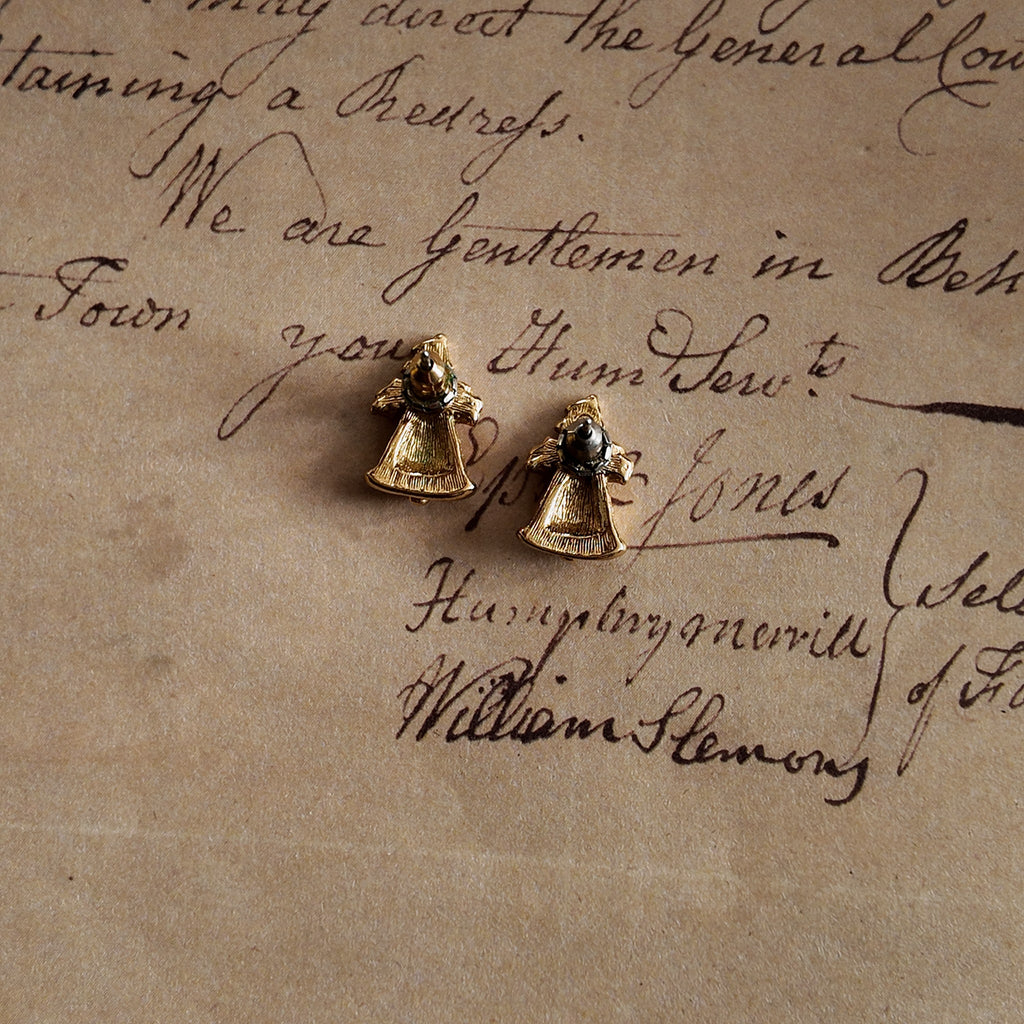 may direct the General Cou
taining a Redreſs.
We are Gentlemen in Beh
Town your Hum Servts
Jones
Humphry merrill
William Slemons
Sele
of